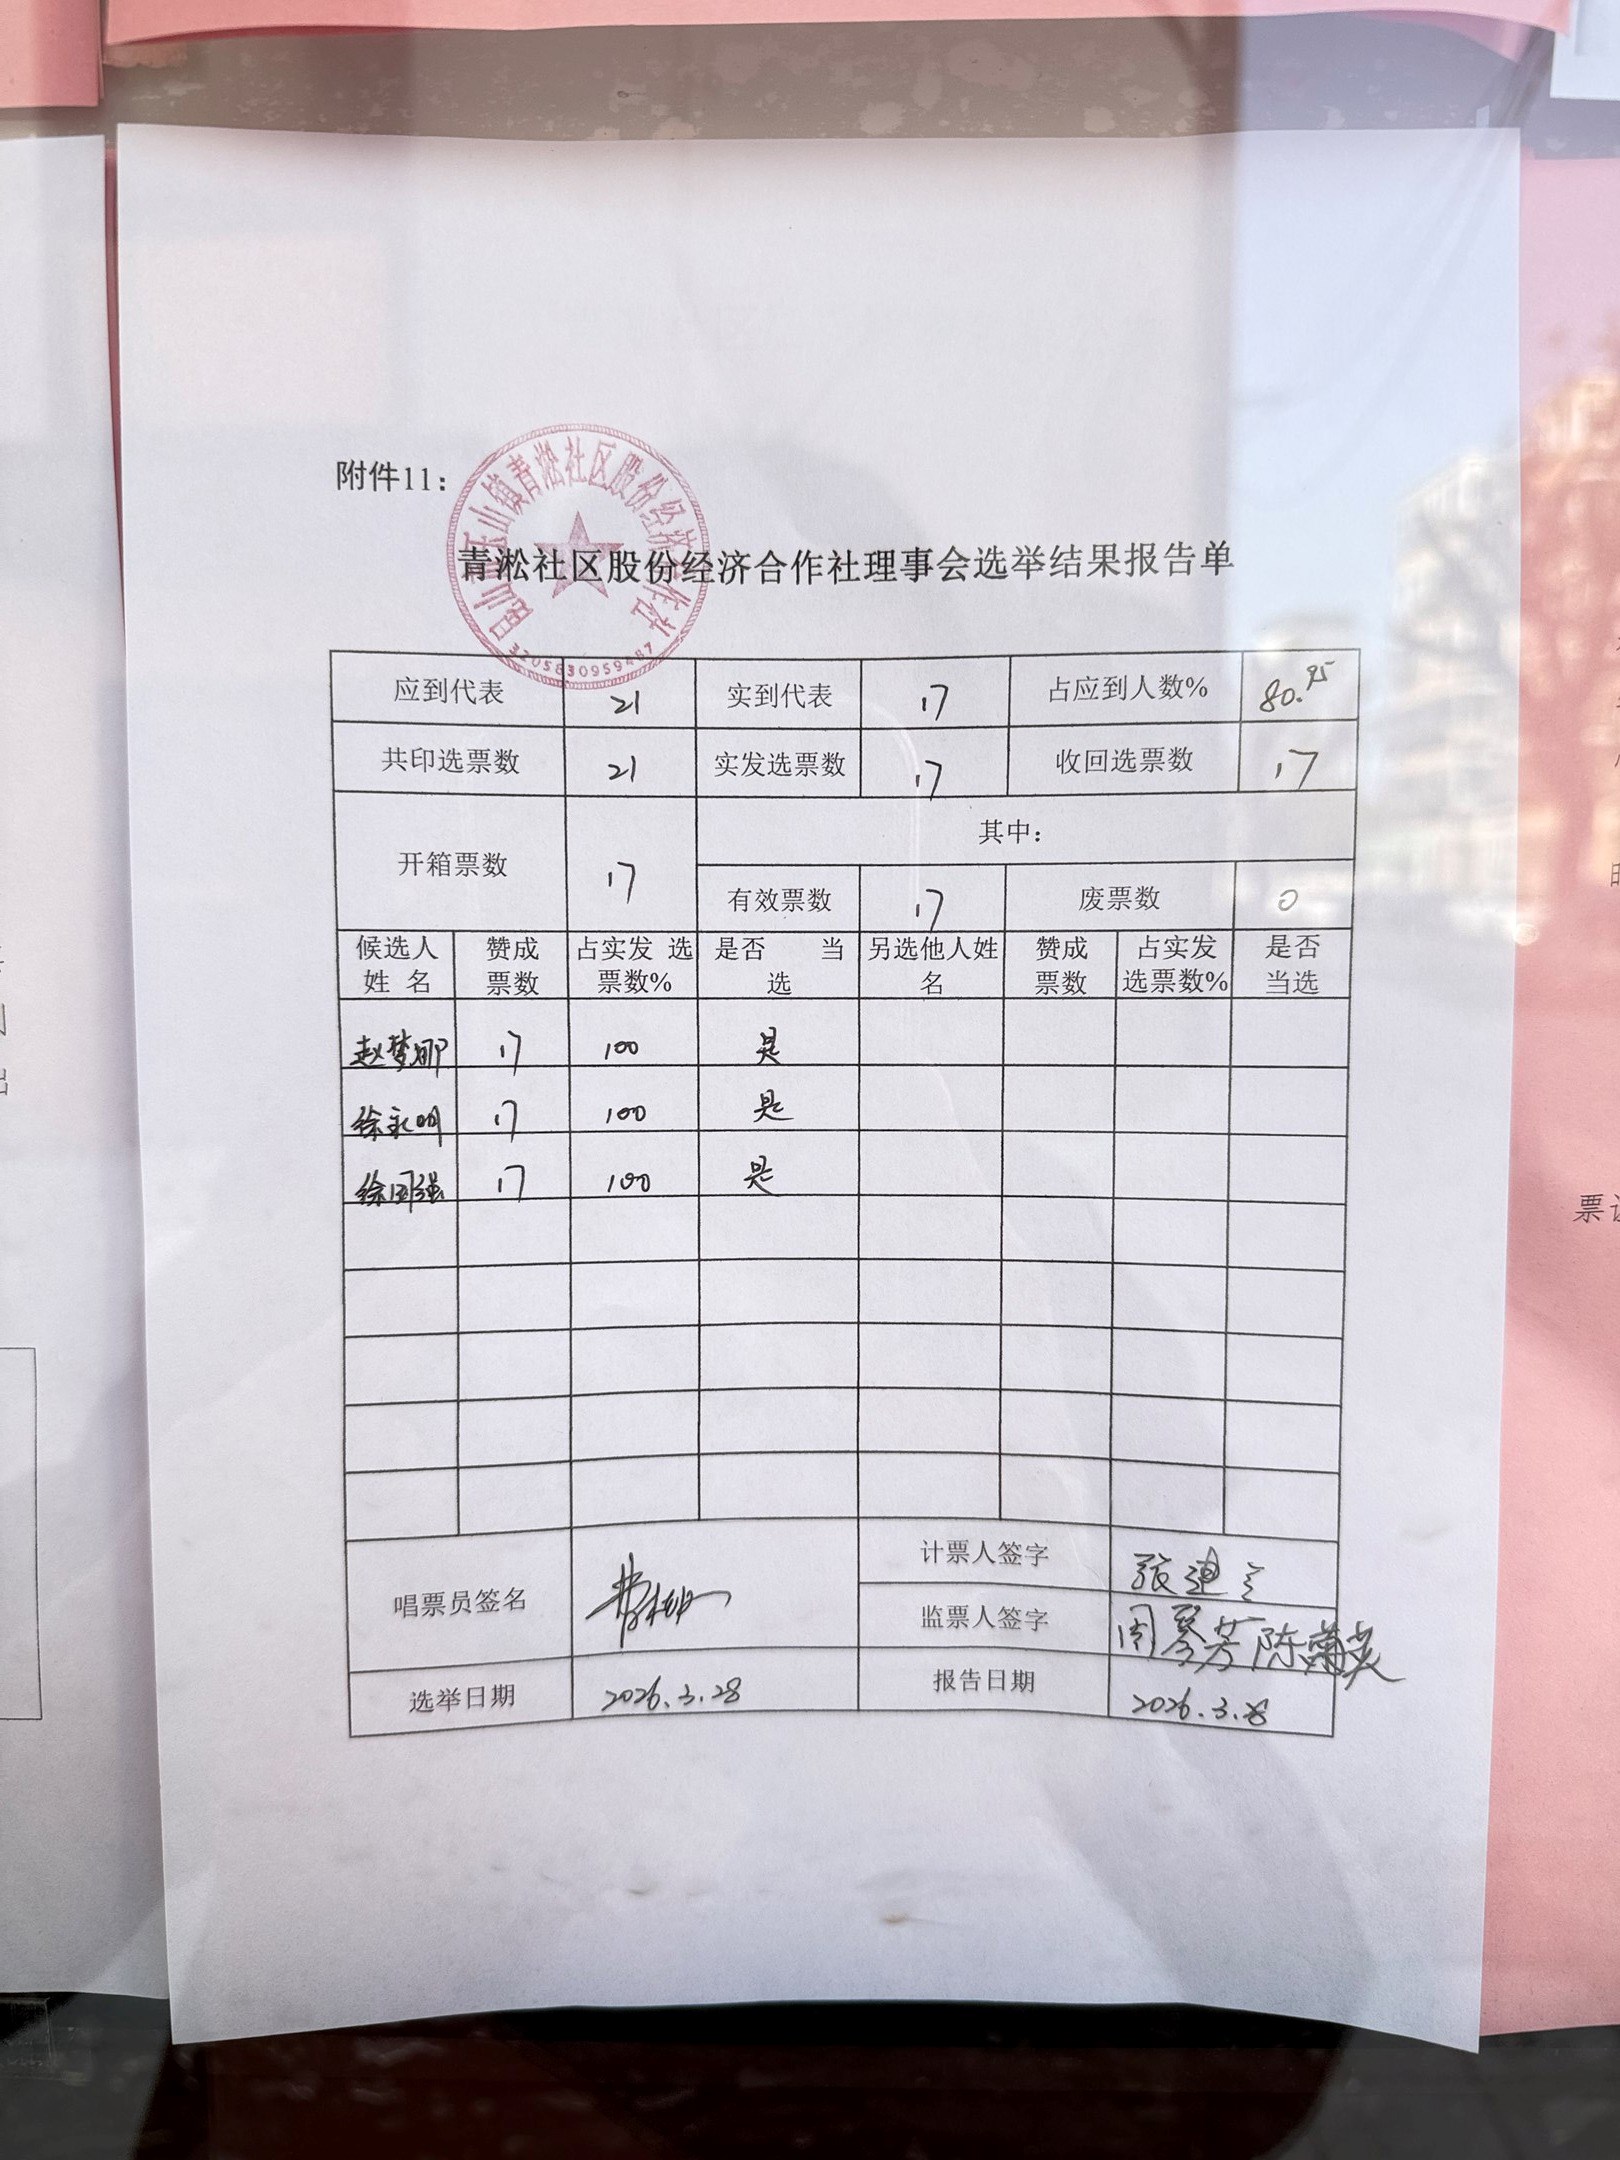 附件11：
昆山市玉山镇青淞社区股份经济合作社
3205830959487
青淞社区股份经济合作社理事会选举结果报告单
应到代表 21 实到代表 17 占应到人数% 80.95
共印选票数 21 实发选票数 17 收回选票数 17
开箱票数 17 其中：
有效票数 17 废票数 0
候选人姓名 赞成票数 占实发选票数% 是否当选 另选他人姓名 赞成票数 占实发选票数% 是否当选
赵梦娜 17 100 是
徐永明 17 100 是
徐国强 17 100 是
唱票员签名 计票人签字 张迪
监票人签字 周琴芳 陈菊英
选举日期 2026.3.28 报告日期 2026.3.28
票